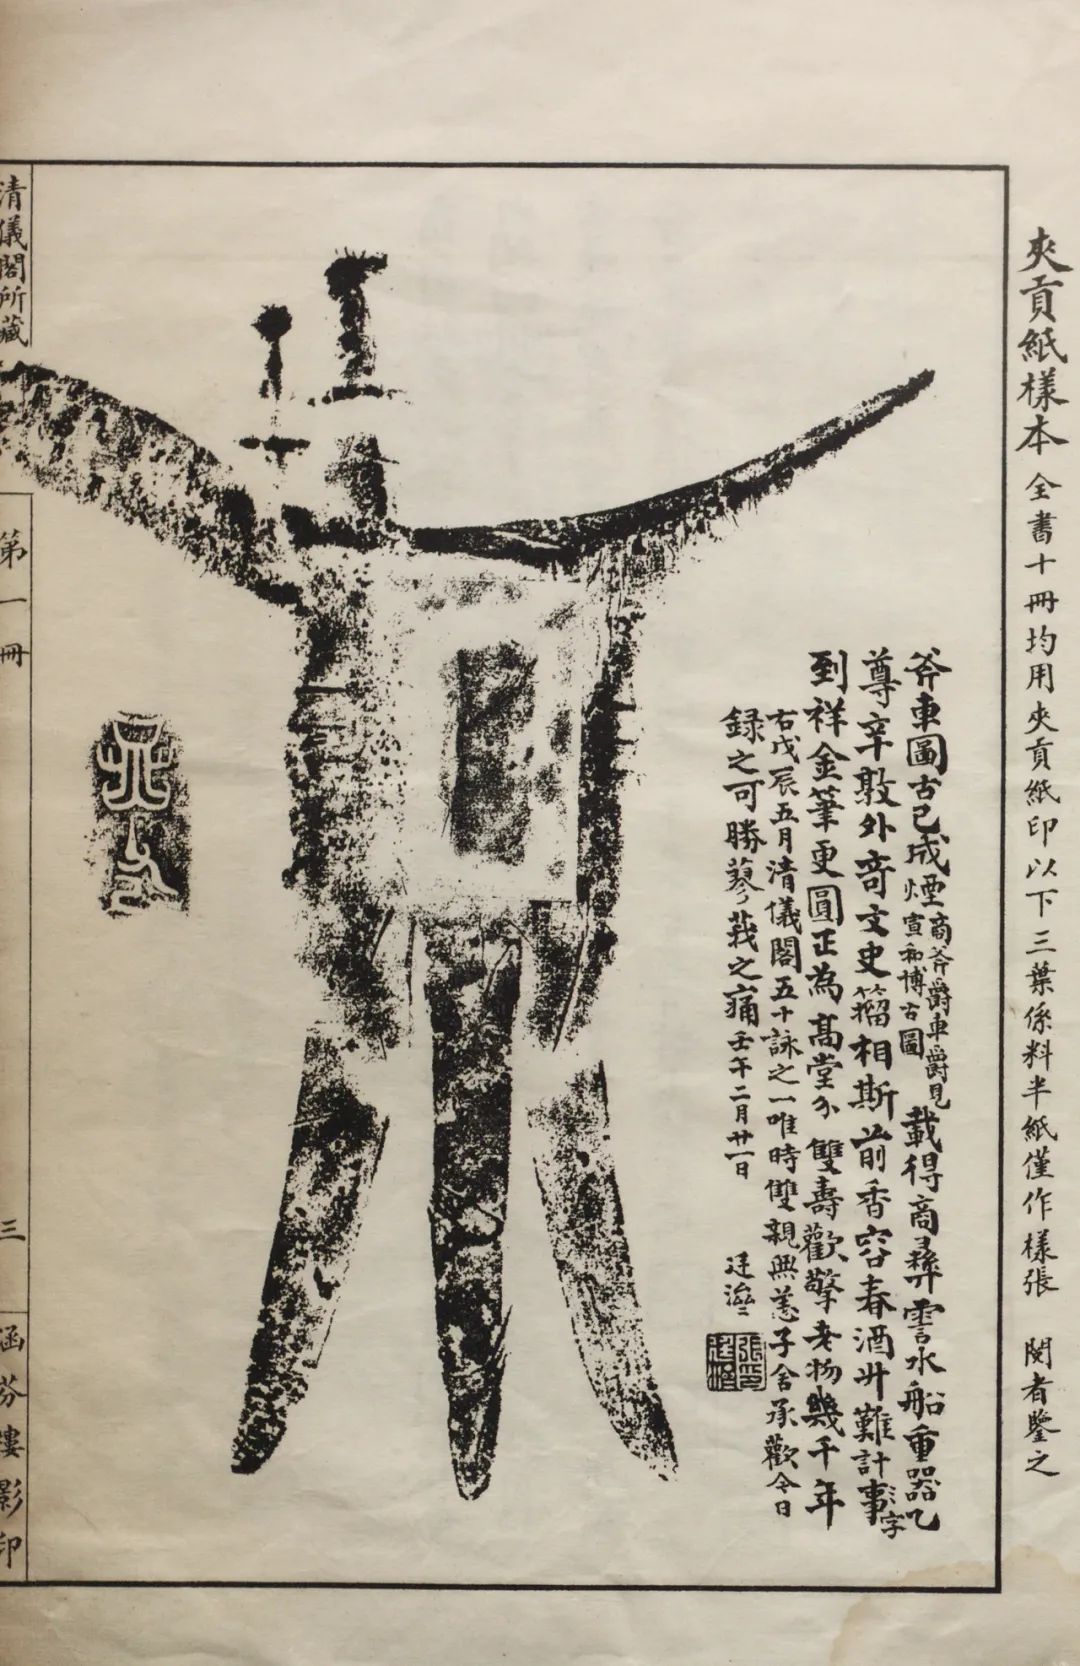 夾貢紙樣本 全書十冊均用夾貢紙印以下三葉係料半紙僅作樣張 閱者鑒之
斧車圖古已成煙商斧爵車爵見宣和博古圖載得商彝霅水船重器乙
尊辛敦外奇文史籀相斯前香容春酒廾難計事彡字
到祥金筆更圓正為高堂介雙壽歡擎老物幾千年
右戊辰五月清儀閣五十詠之一唯時雙親無恙子舍承歡今日
録之可勝蓼莪之痛壬午二月廿一日 廷濟
張廷濟印
清儀閣所藏
第一冊
三
涵芬樓影印